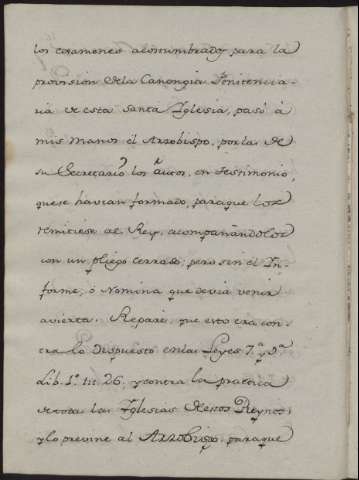 los examenes acostumbrados para la
provision dela Canongia Penitencia-
ria de esta Santa Yglesia, pasó á
mis manos el Arzobispo, por la de
su Secretario los autos, en testimonio,
que se havian formado, para que los
remitiese al Rey, acompañandolos
con un pliego cerrado, pero sin el In-
forme, ó Nomina que devia venir
avierta. Reparé que esto era con-
tra lo dispuesto en las Leyes 7.ª y
Lib. 1.º tit. 26, y contra la practica
de todas las Yglesias de estos Reynos,
y lo previne al Arzobispo, para que